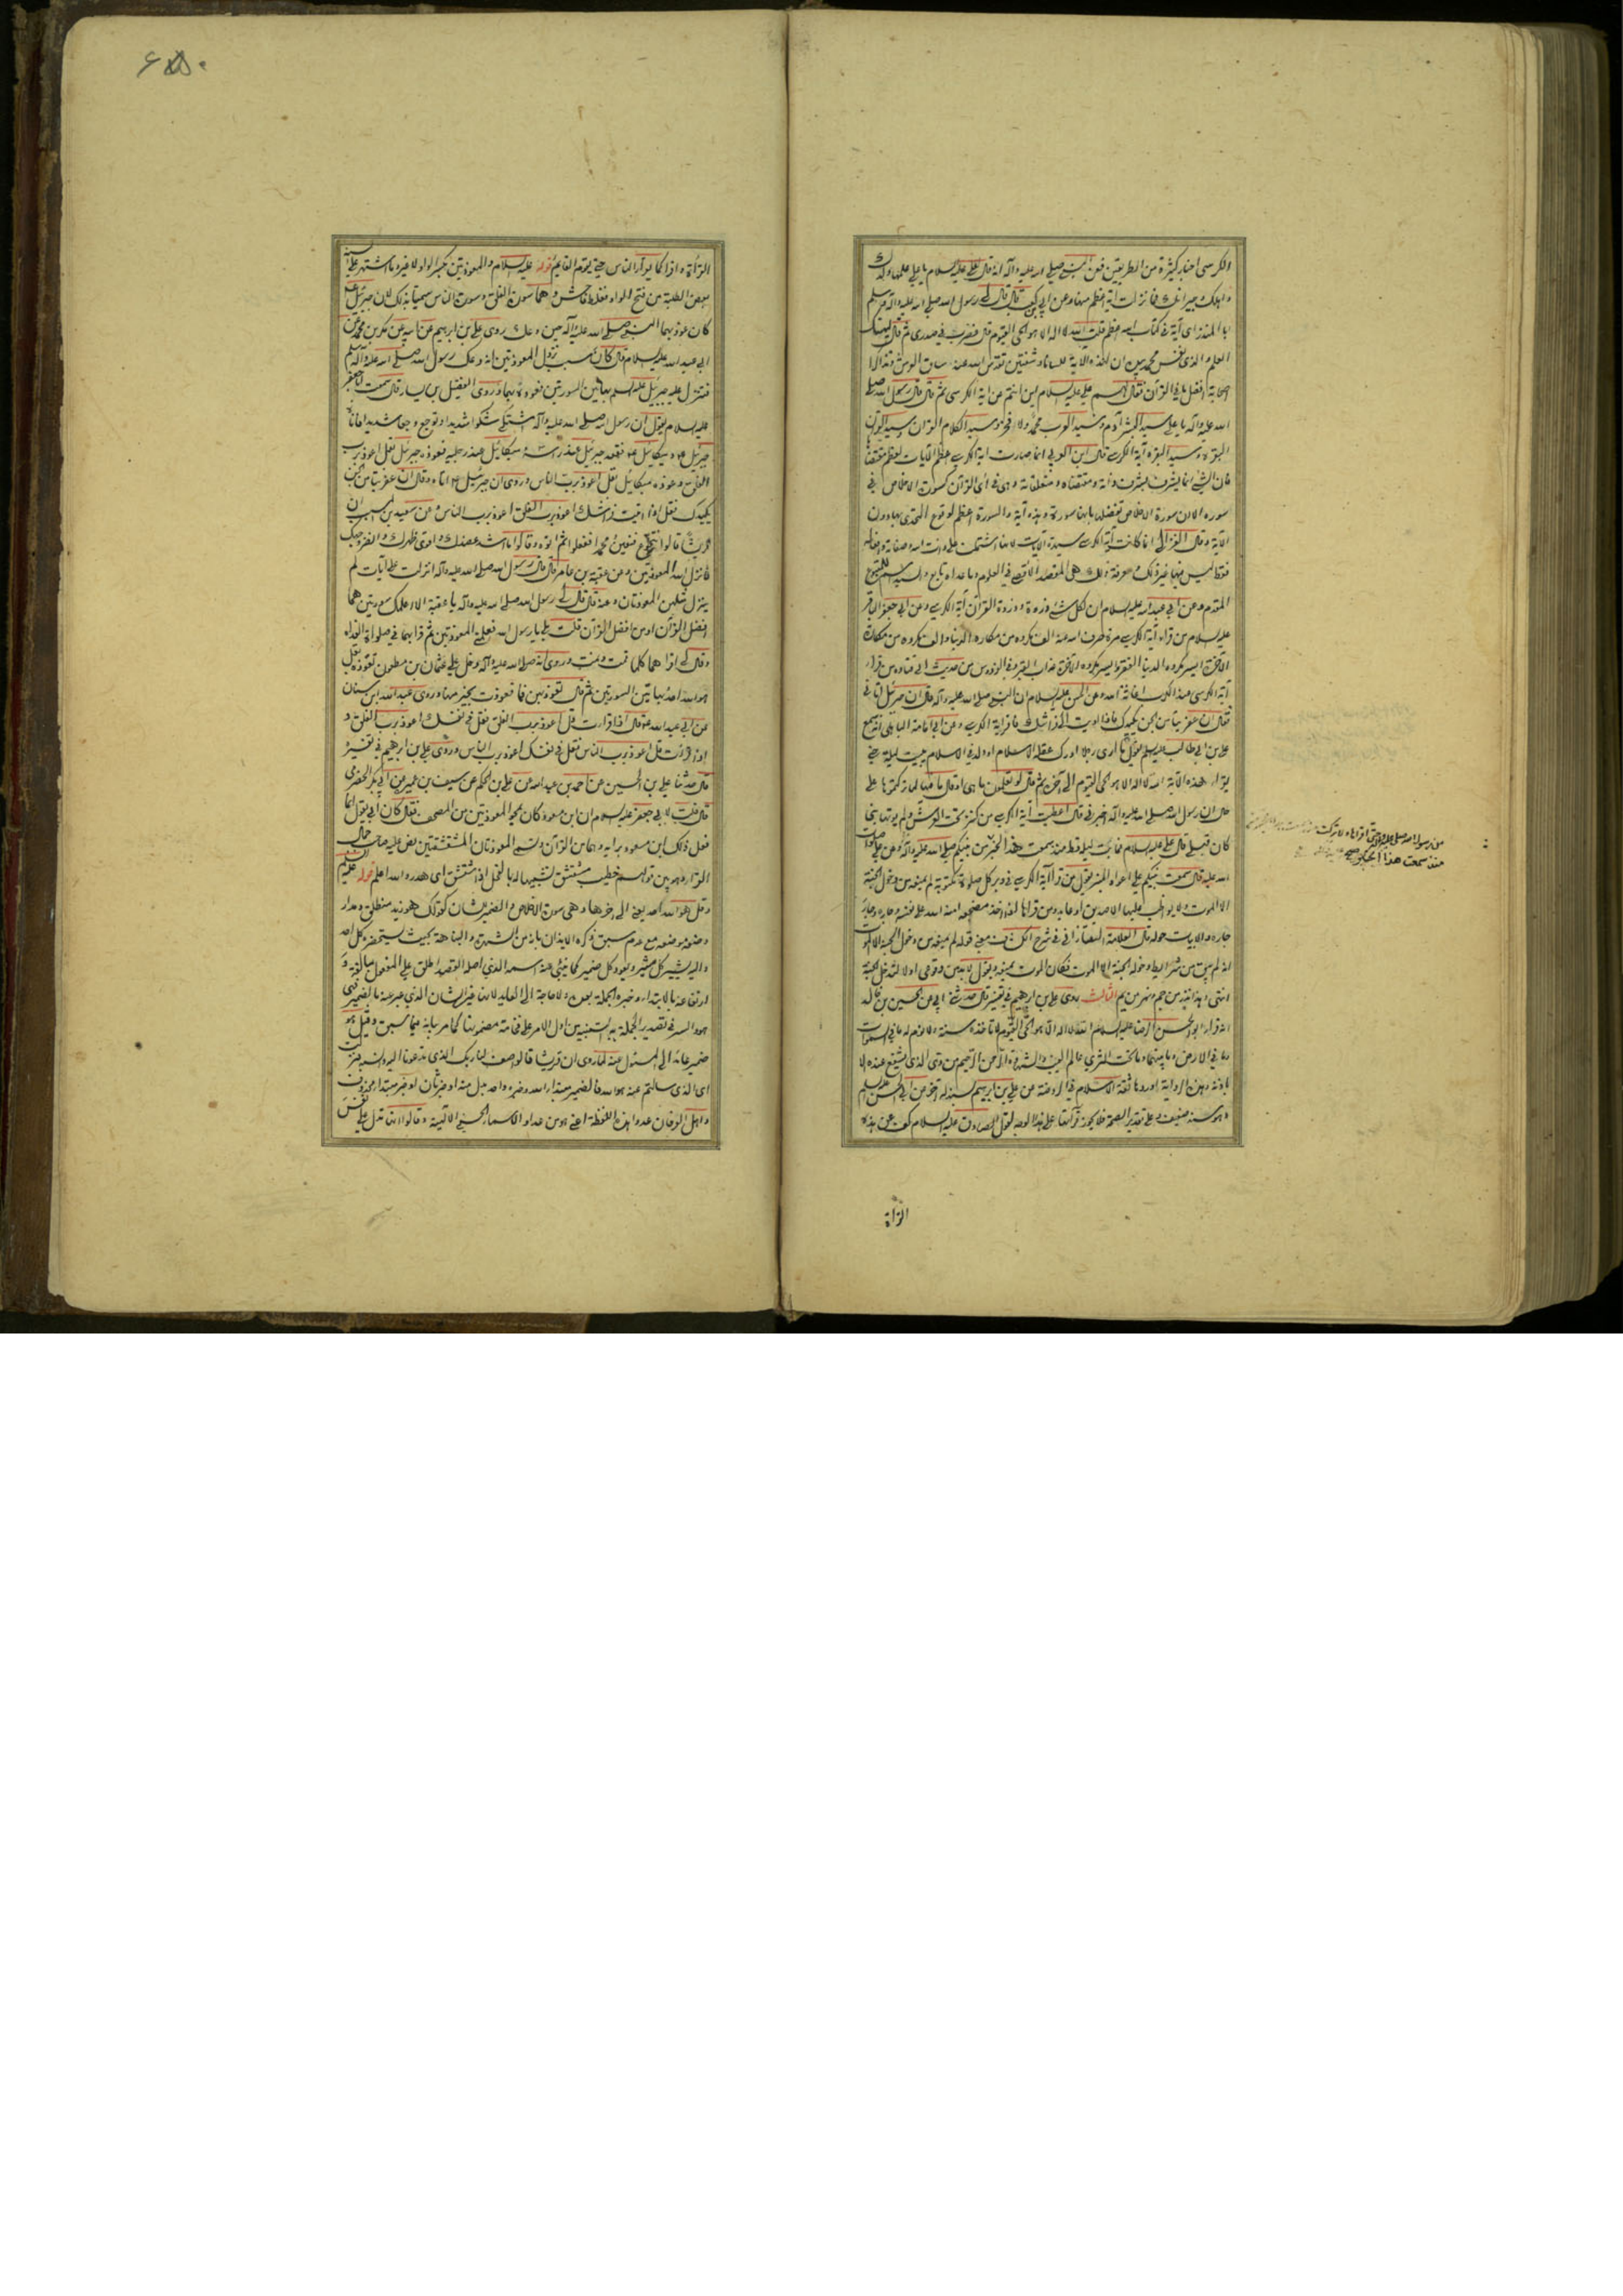 الكرسي اخبار كثيرة من الطريقين فعن النبي صلى الله عليه وآله انه قال لعلي عليه السلام يا علي علمها ولدك
واهلك وجيرانك فما نزلت آية اعظم منها وعن ابي بن كعب قال قال لي رسول الله صلى الله عليه وآله وسلم
ابا المنذر اي آية في كتاب الله اعظم قلت الله لا اله الا هو الحي القيوم قال فضرب في صدري ثم قال ليهنك
العلم والذي نفس محمد بيده ان لهذه الآية للسانا وشفتين تقدس الله عند ساق العرش وتذاكر
الصحابة افضل ما في القرآن فقال لهم علي عليه السلام اين انتم من آية الكرسي ثم قال قال رسول الله صلى
الله عليه وآله يا علي سيد البشر آدم وسيد العرب محمد ولا فخر وسيد الكلام القرآن وسيد القرآن
البقرة وسيد البقرة آية الكرسي قال ابن العربي انما صارت آية الكرسي اعظم الآيات لعظم مقتضاها
فان الشيء انما يشرف بشرف ذاته ومقتضاه ومتعلقاته وهي في آي القرآن كسورة الاخلاص في
سوره الا ان سورة الاخلاص تفضلها بانها سورة وهذه آية والسورة اعظم لوقوع التحدي بها دون
الآية وقال الغزالي انما كانت آية الكرسي سيدة الآيات لانها اشتملت على ذات الله وصفاته وافعاله
فقط ليس فيها غير ذلك ومعرفة ذلك هي المقصد الاقصى في العلوم وما عداه تابع والسيد اسم للمتبوع
المقدم وعن ابي عبد الله عليه السلام ان لكل شيء ذروة وذروة القرآن آية الكرسي وعن ابي جعفر الباقر
عليه السلام من قرا آية الكرسي مرة صرف الله عنه الف مكروه من مكاره الدنيا والف مكروه من مكاره
الآخرة ايسر مكروه الدنيا الفقر وايسر مكروه الآخرة عذاب القبر وفي الفردوس من حديث ابي قتادة من قرا
آية الكرسي عند الكرب اغاثه الله وعن الحسن عليه السلام ان النبي صلى الله عليه وآله قال ان جبرئيل اتاني
فقال ان عفريتا من الجن يكيدك فاذا اويت الى فراشك فاقرا آية الكرسي وعن ابي امامة الباهلي انه سمع
علي بن ابي طالب عليه السلام يقول ما ارى رجلا ادرك عقله الاسلام او ولد في الاسلام يبيت ليلة حتى
يقرا هذه الآية الله لا اله الا هو الحي القيوم الى آخره ثم قال لو تعلمون ما هي او قال ما فيها لما تركتموها على
حال ان رسول الله صلى الله عليه وآله اخبرني قال اعطيت آية الكرسي من كنز تحت العرش ولم يؤتها نبي
كان قبلي قال علي عليه السلام فما بت ليلة قط منذ سمعت هذا الخبر من نبيكم صلى الله عليه وآله وعن علي صلوات
الله عليه قال سمعت نبيكم على اعواد المنبر يقول من قرا آية الكرسي في دبر كل صلوة مكتوبة لم يمنعه من دخول الجنة
الا الموت ولا يواظب عليها الا صديق او عابد ومن قراها اذا اخذ مضجعه امنه الله على نفسه وجاره وجار
جاره والابيات حوله قال العلامة التفتازاني في شرح الكشاف معنى قوله لم يمنعه من دخول الجنة الا الموت
انه لم يبق من شرايط دخوله الجنة الا الموت فكان الموت يمنعه ويقول لا بد من وقوعي اولا لتدخل الجنة
انتهى الثالث روى علي بن ابرهيم في تفسيره قال حدثني ابي عن الحسين بن خالد
انه قرا ابو الحسن الرضا عليه السلام الله لا اله الا هو الحي القيوم لا تاخذه سنة ولا نوم له ما في السموات
وما في الارض وما بينهما وما تحت الثرى عالم الغيب والشهادة الرحمن الرحيم من ذا الذي يشفع عنده الا
باذنه وهذه الرواية اوردها ثقة الاسلام في الروضة عن علي بن ابرهيم بسند آخر عن ابي الحسن عليه السلام
وهو سند ضعيف وعلى تقدير الصحة فلا يجوز قرآتها على هذا الوجه لقول الصادق عليه السلام كف عن هذه
القراة
من رسول الله صلى الله عليه وآله حتى اقراها وما تركت
منذ سمعت هذا الخبر صح
القراة واقرا كما يقرا الناس حتى يقوم القايم قوله عليه السلام والمعوذتين بكسر الواو لا غير وما اشتهر على السنة
بعض الطلبة من فتح الواو فغلط فاحش وهما سورة الفلق وسورة الناس سميتا بذلك لان جبرئيل ع
كان عوذ بهما النبي صلى الله عليه وآله حين وعك روى علي بن ابرهيم عن ابيه عن بكر بن محمد عن
ابي عبد الله عليه السلام قال كان سبب نزول المعوذتين انه وعك رسول الله صلى الله عليه وآله وسلم
فنزل عليه جبرئيل عليه السلم بهاتين السورتين فعوذه بهما وروى الفضيل بن يسار قال سمعت ابا جعفر
عليه السلام يقول ان رسول الله صلى الله عليه وآله اشتكى شكوا شديدا وتوجع وجعا شديدا فاتاه
جبرئيل ع وميكائيل ع فقعد جبرئيل عند راسه وميكائيل عند رجليه فعوذه جبرئيل بقل اعوذ برب
الفلق وعوذه ميكائيل بقل اعوذ برب الناس وروى ان جبرئيل ع اتاه وقال ان عفريتا من الجن
يكيدك فقل اذا اتيت فراشك اعوذ برب الفلق اعوذ برب الناس وعن سعيد بن المسيب ان
قريشا قالوا
فانزل الله المعوذتين وعن عقبة بن عامر قال قال رسول الله صلى الله عليه وآله انزلت علي آيات لم
ينزل مثلهن المعوذتان وعنه قال قال لي رسول الله صلى الله عليه وآله يا عقبة الا اعلمك سورتين هما
افضل القرآن او من افضل القرآن قلت بلى يا رسول الله فعلمني المعوذتين ثم قرا بهما في صلوة الغداة
وقال لي اقراهما كلما قمت ونمت وروى انه صلى الله عليه وآله دخل على عثمان بن مظعون فعوذه بقل
هو الله احد وبهاتين السورتين ثم قال تعوذ بهن فما تعوذت بخير منها وروى عبد الله بن سنان
عن ابي عبد الله ع قال اذا قرات قل اعوذ برب الفلق فقل في نفسك اعوذ برب الفلق و
اذا قرات قل اعوذ برب الناس فقل في نفسك اعوذ برب الناس وروى علي بن ابرهيم في تفسيره
قال حدثنا علي بن الحسين عن احمد بن عبد الله عن علي بن الحكم عن سيف بن عميرة عن ابي بكر الحضرمي
قال قلت لابي جعفر عليه السلام ان ابن مسعود كان يمحو المعوذتين من المصحف فقال كان ابي يقول انما
فعل ذلك ابن مسعود برايه وهما من القرآن وتسمى المعوذتان المقشقشتين نص عليه صاحب جمال
القراء من قولهم خطيب مشقشق تشبيها له بالفحل اذا شقشق اي هدر والله اعلم قوله عليه السلم
وقل هو الله احد يعني الى آخرها وهي سورة الاخلاص والضمير للشان كقولك هو زيد منطلق ومدار
وضعه موضعه مع عدم سبق ذكره الايذان بانه من الشهرة والنباهة بحيث يستحضره كل احد
واليه يشير كل مشير ويعود كل ضمير كما ينبئ عنه اسمه الذي اصله القصد اطلق على المفعول مبالغة و
ارتفاعه بالابتداء وخبره الجملة بعده ولا حاجة الى العايد لانها خبر الشان الذي عبر عنه بالضمير فهي
هو والسر في تصدير الجملة به التنبيه من اول الامر على فخامة مضمونها كما مر بيانه فيما سبق وقيل هو
ضمير عائد الى المسئول عنه لما روى ان قريشا قالوا صف لنا ربك الذي تدعونا اليه وانسبه فنزلت
اي الذي سالتم عنه هو الله فالضمير مبتدا والله خبره واحد بدل منه او خبر ثان او خبر مبتدا محذوف
واهل العرفان عدوا هذه اللفظة اعني هو من عداد الاسماء الحسنى الالهية وقالوا انها تدل على نفس